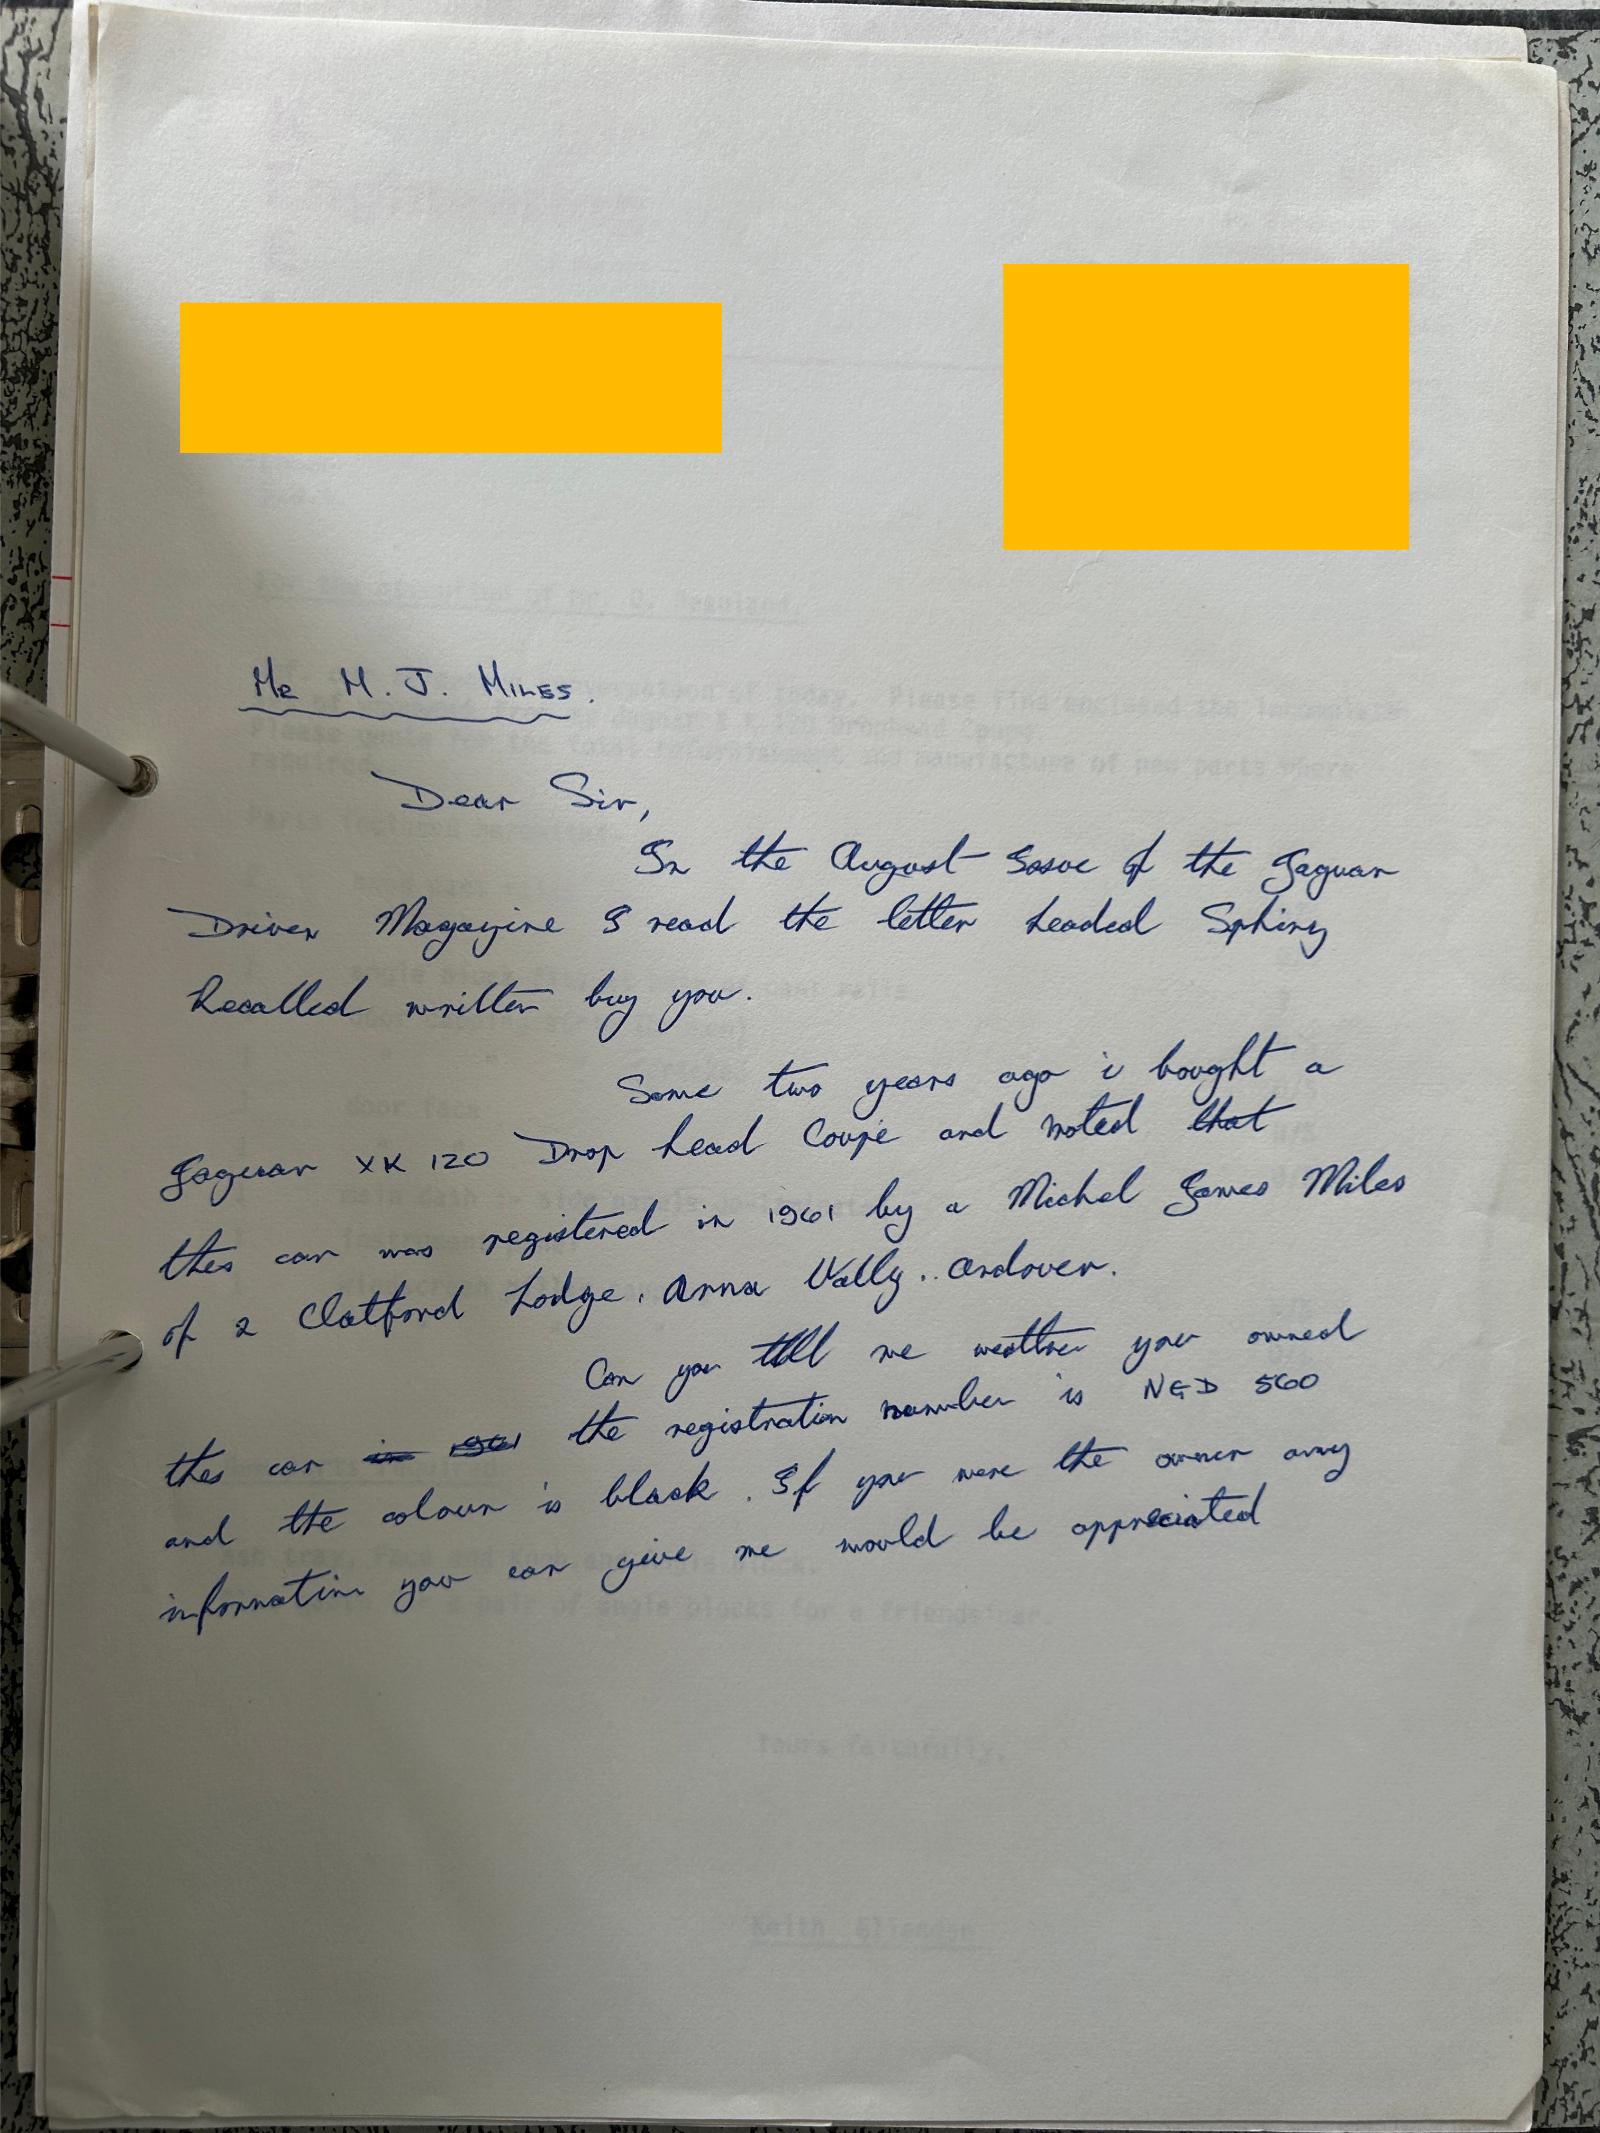 Mr M. J. Miles.
Dear Sir,
In the August Issue of the Jaguar
Driver Magazine I read the letter headed Sphinx
Recalled written buy you.
Some two years ago i bought a
Jaguar XK 120 Drop head Coupé and noted that
thes car was registered in 1961 by a Michel James Miles
of 2 Clatford Lodge, Anna Vally.. Andover.
Can you tell me weather you owned
thes car in 1961 the registration number is NGD 560
and the colour is black. If you were the owner any
information you can give me would be appreciated
Yours faithfully,